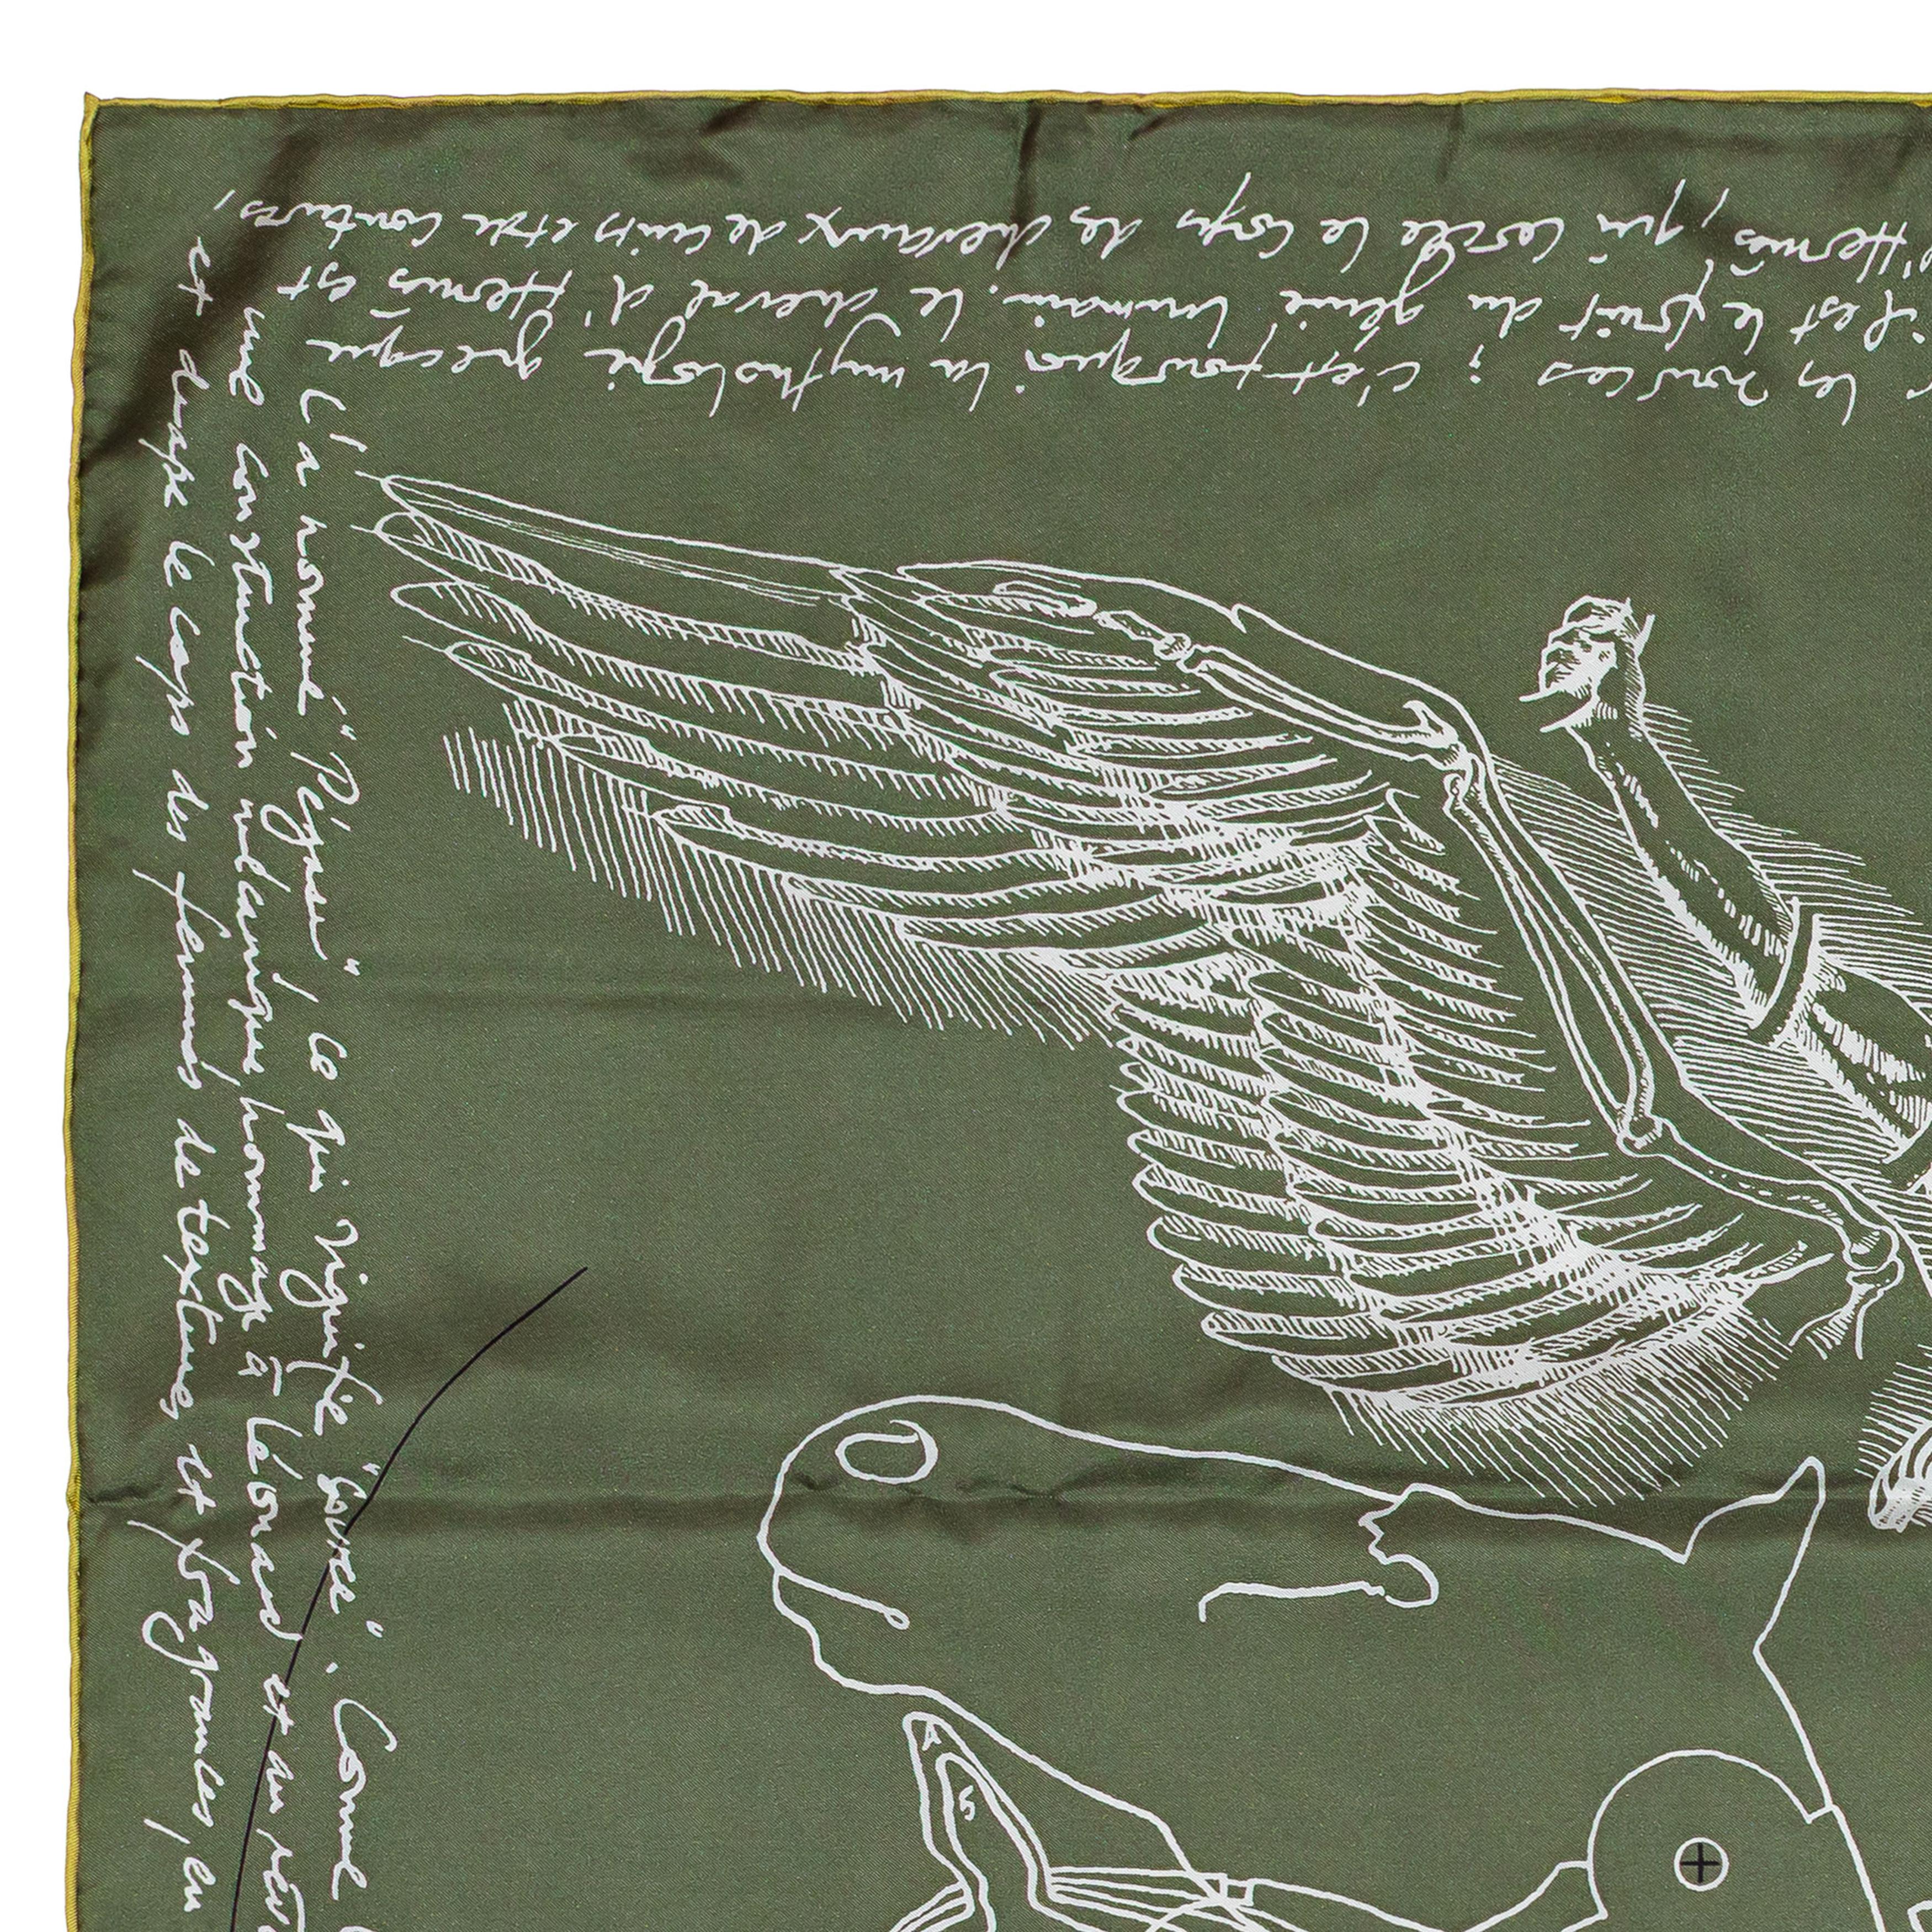 les sources ; c'est pourquoi la mythologie grecque
il est le fruit du génie humain. Le cheval d'Hermès est
d'Hermès, qui cercle le corps des chevaux de cuirs et de coutures,
l'a nommé "Pégase", ce qui signifie "source". Comme
une construction mécanique, hommage à Léonard et au
et drape le corps des femmes de textures et fragrances, en